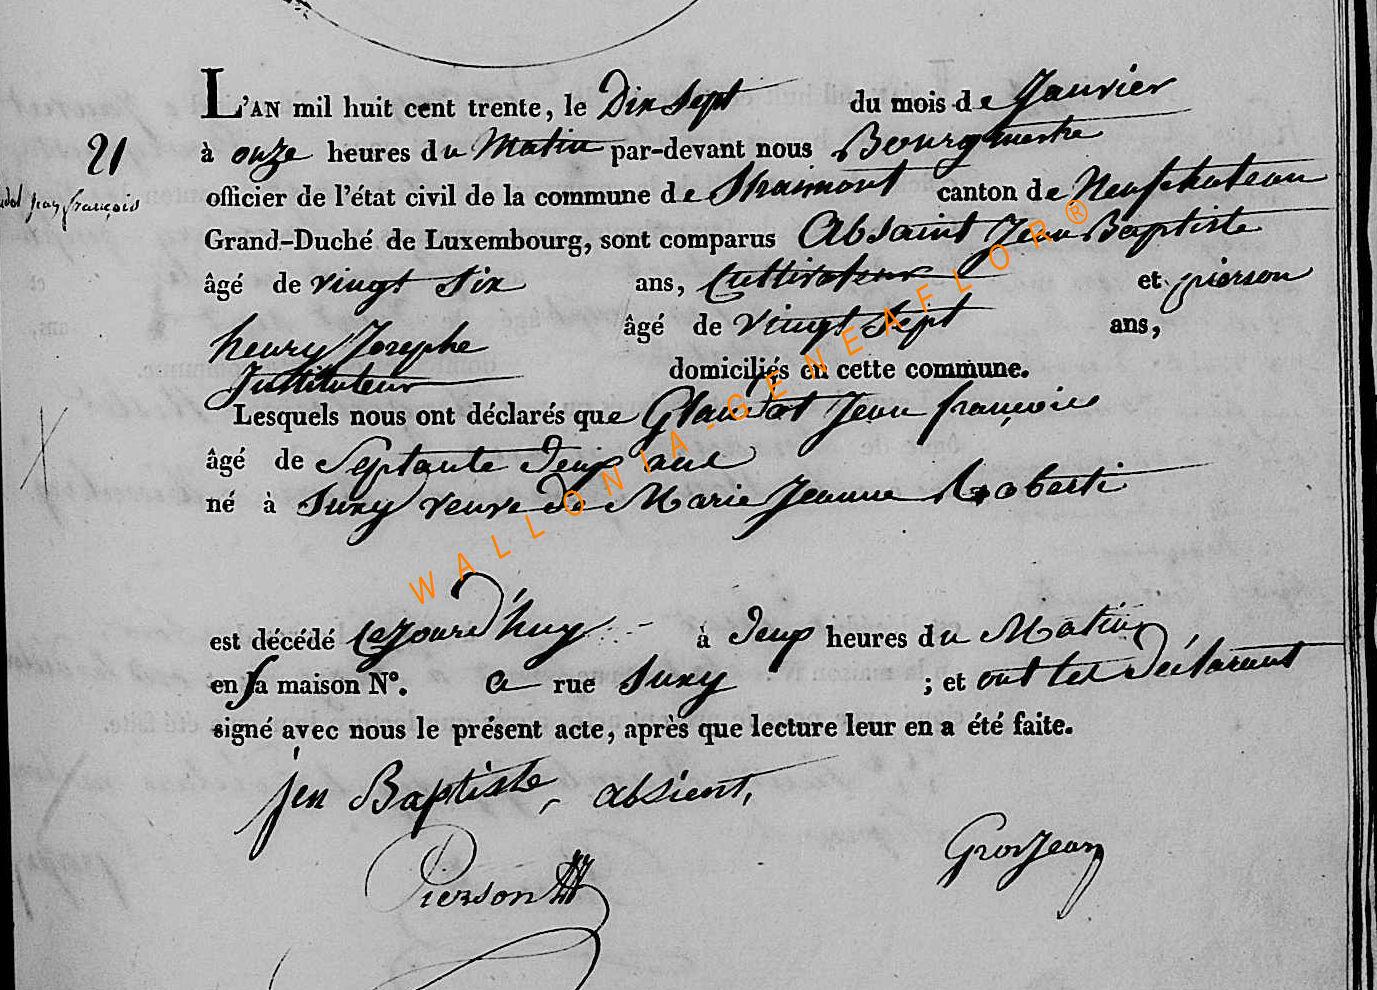 L'AN mil huit cent trente, le Dix Sept du mois de Janvier
21
à onze heures du Matin par-devant nous Bourgmestre
officier de l'état civil de la commune de Straimont canton de Neufchateau
jean françois
Grand-Duché de Luxembourg, sont comparus Absaint Jean Baptiste
âgé de vingt Six ans, Cultivateur et pierson
henry Josephe âgé de vingt Sept ans,
Instituteur domiciliés en cette commune.
Lesquels nous ont déclarés que Glaudot Jean françois
âgé de Septante Deux ans
né à Suxy veuve de Marie Jeanne Roberti
est décédé cejourd'huy à Deux heures du Matin
en sa maison N°. a rue Suxy ; et ont les déclarant
signé avec nous le présent acte, après que lecture leur en a été faite.
jen Baptiste, absient,
GrosJean
Pierson
WALLONIA-GENEAFLOR®